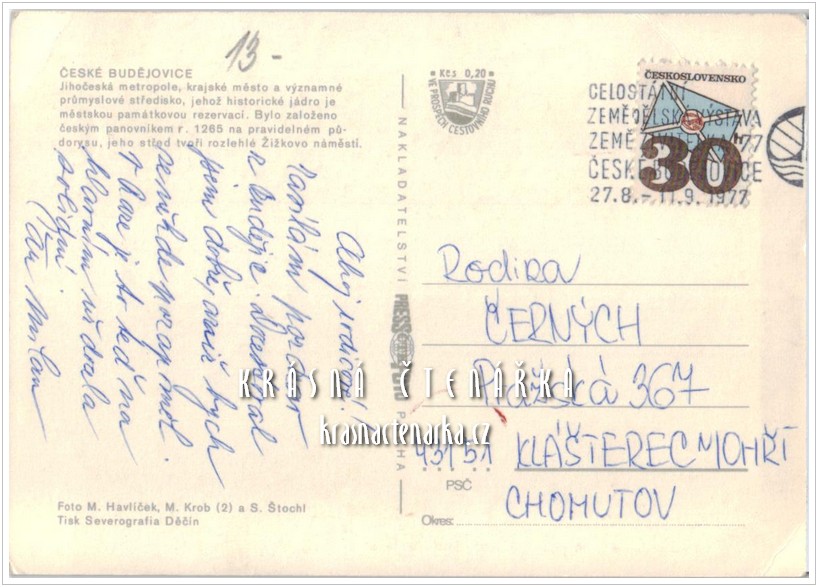 13-
ČESKÉ BUDĚJOVICE
Jihočeská metropole, krajské město a významné
průmyslové středisko, jehož historické jádro je
městskou památkovou rezervací. Bylo založeno
českým panovníkem r. 1265 na pravidelném pů-
dorysu, jeho střed tvoří rozlehlé Žižkovo náměstí.
Ahoj rodičové!
Posílám pozdrav
z Budějic. Docestoval
jsem dobře, aniž bych
se někde pozapomněl.
Práce je to teď na
hlavním
solidní.
Váš Milan
Foto M. Havlíček, M. Krob (2) a S. Štochl
Tisk Severografia Děčín
NAKLADATELSTVÍ PRESSFOTO PRAHA
Kčs 0,20
VE PROSPĚCH CESTOVNÍHO RUCHU
ČESKOSLOVENSKO
30h
CELOSTÁTNÍ
ZEMĚDĚLSKÁ VÝSTAVA
ZEMĚ 77
ČESKÉ BUDĚJOVICE
27.8.-11.9.1977
Rodina
ČERNÝCH
Pražská 367
431 51 KLÁŠTEREC N OHŘÍ
PSČ
CHOMUTOV
Okres:
KRÁSNÁ ČTENÁŘKA
krasnactenarka.cz